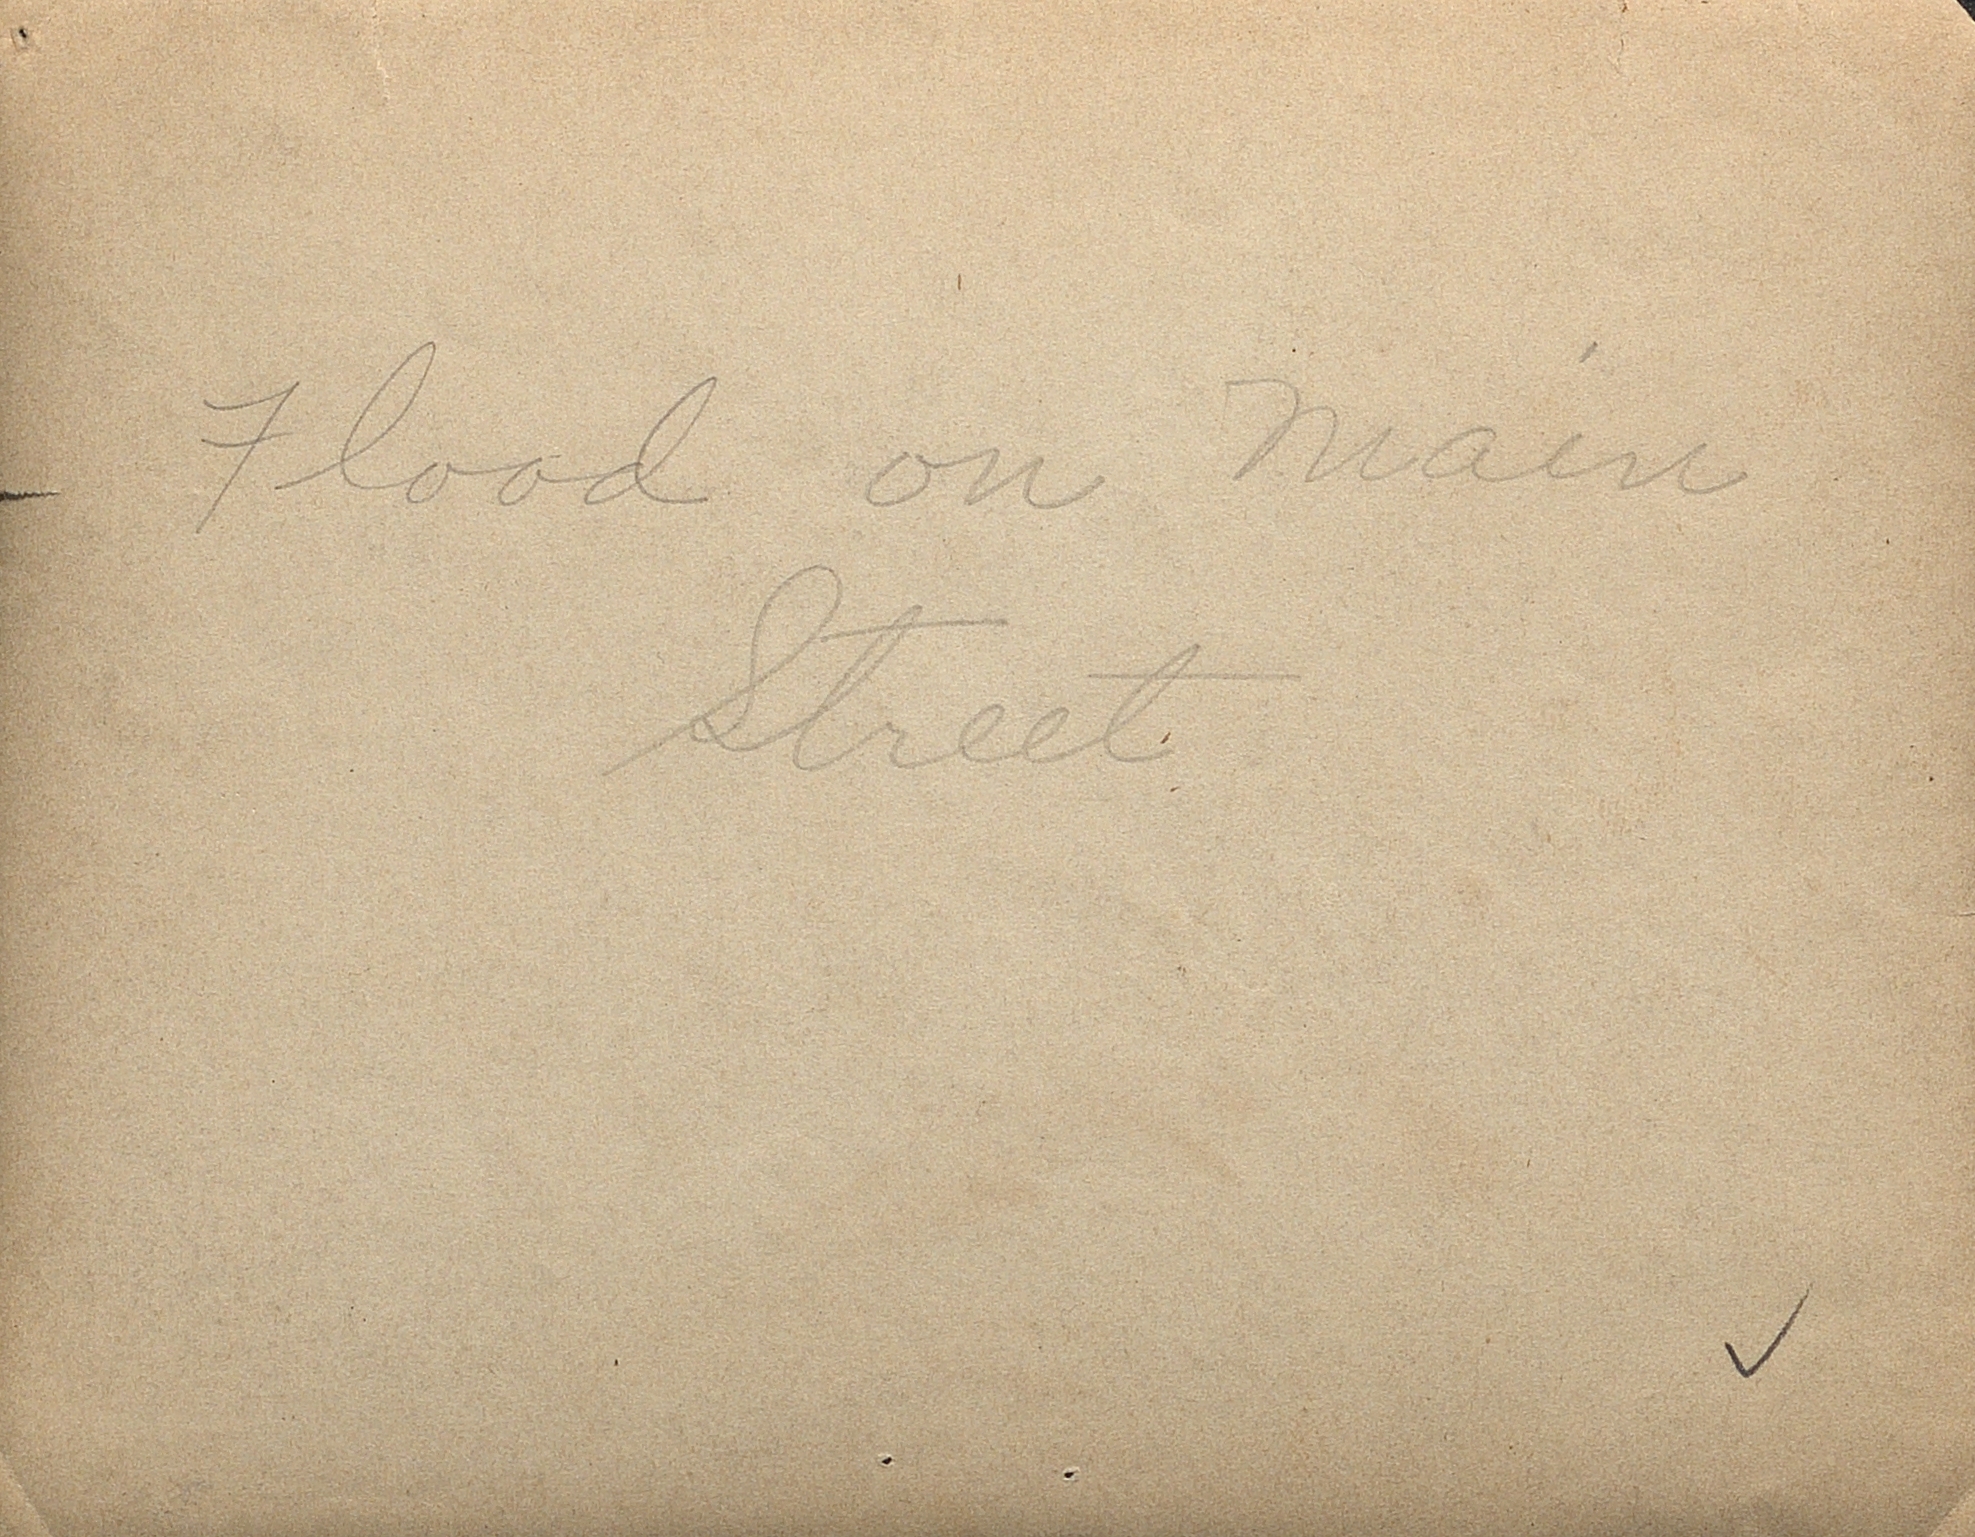 Flood on Main
Street